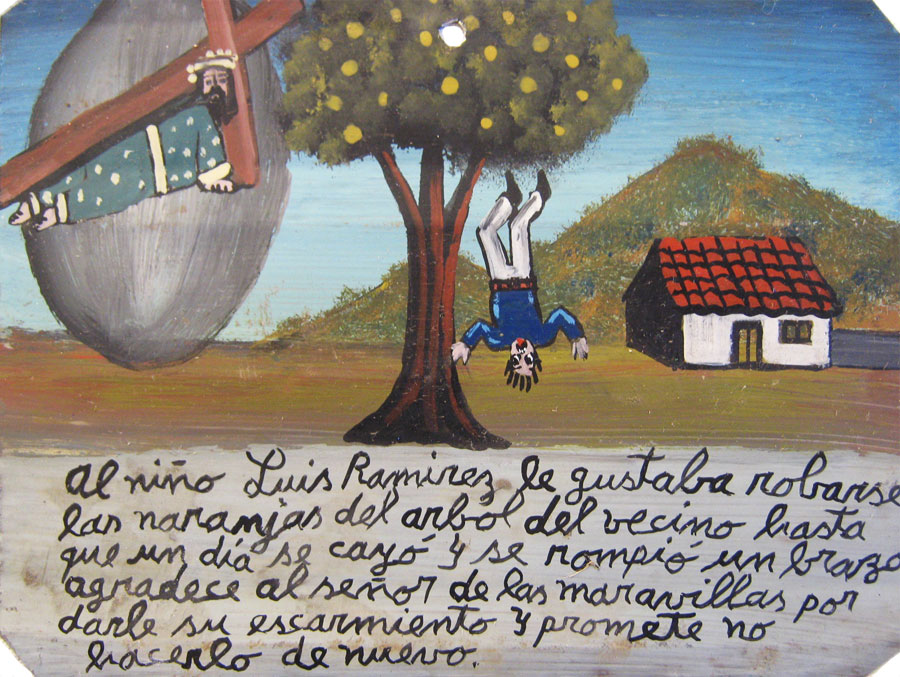 al niño Luis Ramirez le gustaba robarse
las naranjas del arbol del vecino hasta
que un día se cayó y se rompió un brazo
agradece al señor de las maravillas por
darle su escarmiento y promete no
hacerlo de nuevo.